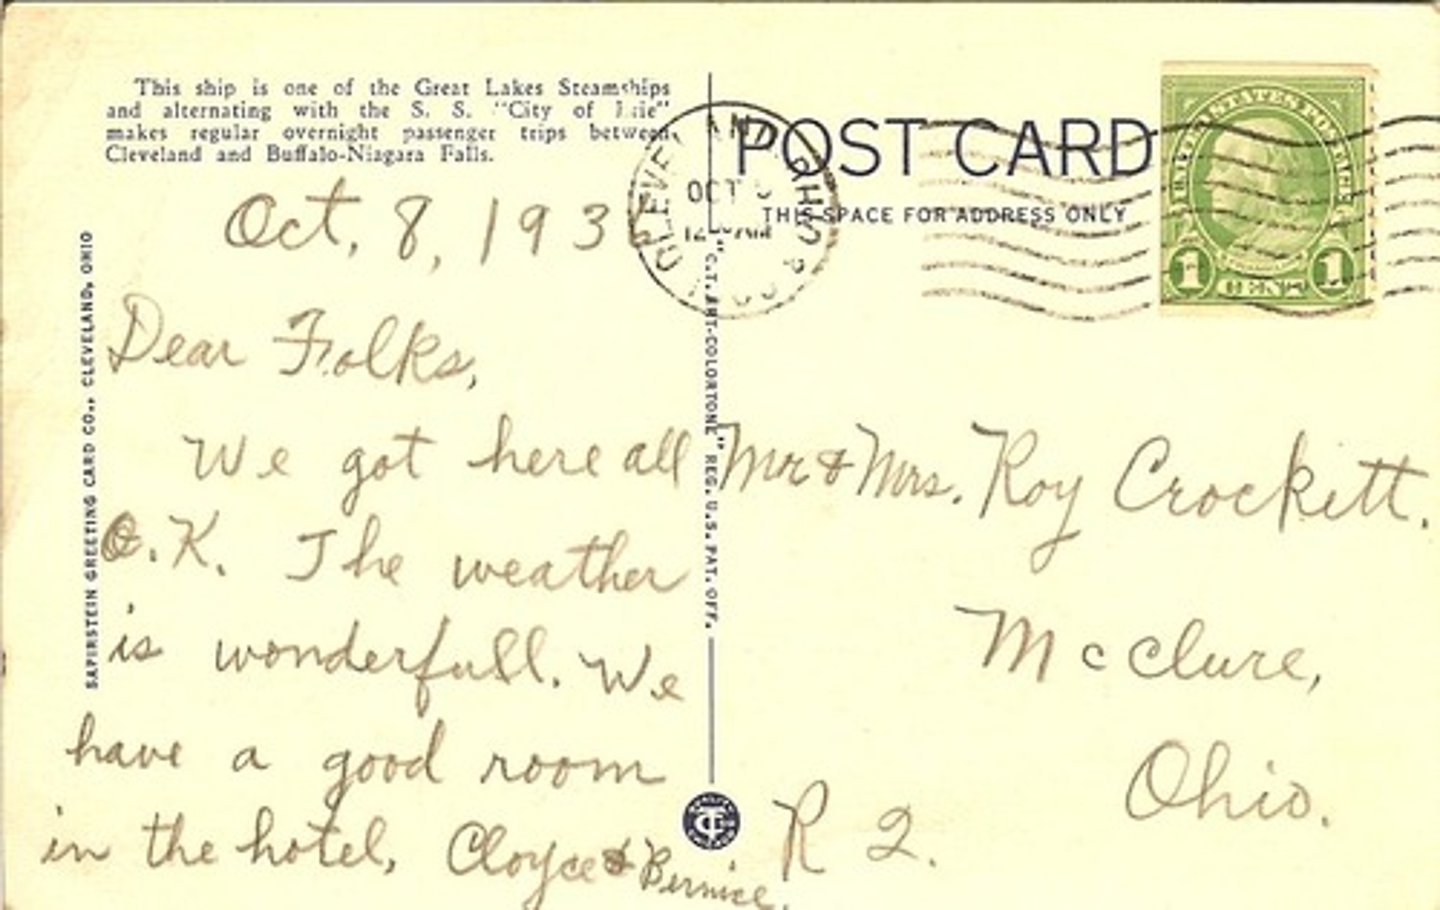 This ship is one of the Great Lakes Steamships
and alternating with the S. S. "City of Erie"
makes regular overnight passenger trips between
Cleveland and Buffalo-Niagara Falls.
Oct, 8, 193
Dear Folks,
We got here all
O.K. The weather
is wonderfull. We
have a good room
in the hotel,
Cloyce & Bernice.
SAPIRSTEIN GREETING CARD CO., CLEVELAND, OHIO
"C.T. ART-COLORTONE" REG. U.S. PAT. OFF.
CLEVELAND, OHIO
OCT
POST CARD
THIS SPACE FOR ADDRESS ONLY
UNITED STATES POSTAGE
1 1
Mr & Mrs. Roy Crockett.
McClure,
Ohio.
R 2.